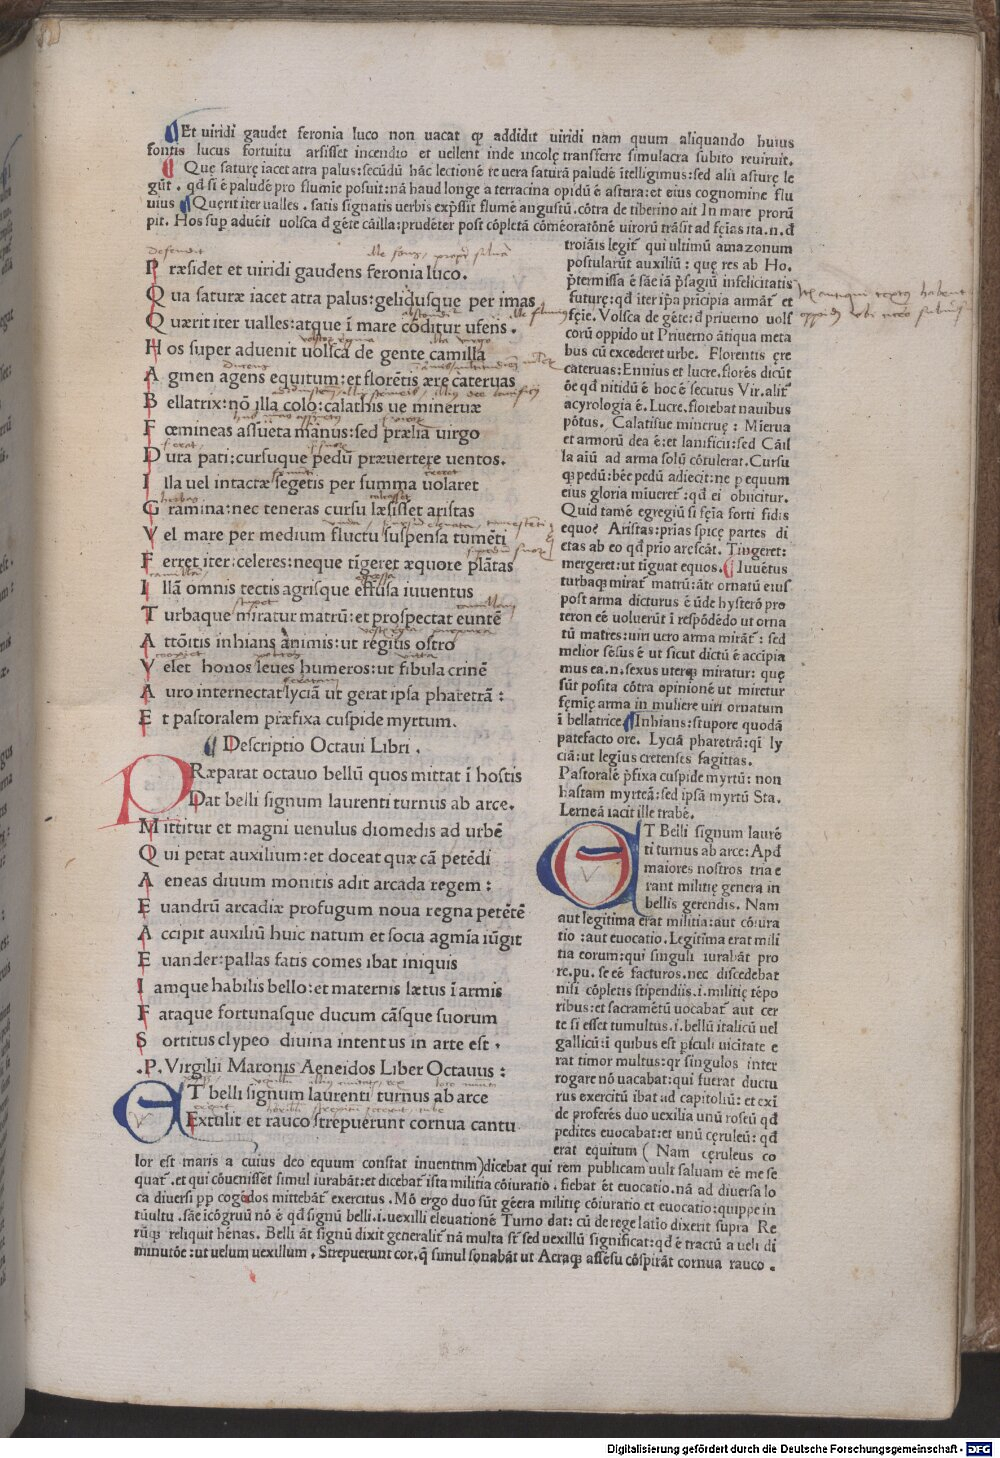 Et uiridi gaudet feronia luco non uacat ꝙ addidit uiridi nam quum aliquando huius
fontis lucus fortuitu arsisset incendio et uellent inde incolę transferre simulacra subito reuiruit.
Quę saturę iacet atra palus: secūdū hāc lectionē re uera saturā paludē ītelligimus: sed alii asturę le
gūt. qđ si ē paludē pro flumīe posuit: nā haud longe a terracina opidū ē astura: et eius cognomine flu
uius Quęrit iter ualles. satis signatis uerbis exp̄ssit flumē angustū. cōtra de tiberino ait In mare prorū
pit. Hos sup adueīt uolsca đ gēte cāilla: prudēter post cōpletā cōmēoratōnē uirorū trāsit ad fęīas ita. n. đ
Præsidet et uiridi gaudens feronia luco.
Qua saturæ iacet atra palus: gelidusque per imas
Quærit iter ualles: atque ī mare cōditur ufens.
Hos super aduenit uolsca de gente camilla
Agmen agens equitum: et florētis ære cateruas
Bellatrix: nō illa colo: calathis ue mineruæ
Fœmineas assueta manus: sed prælia uirgo
Dura pati: cursuque pedū præuertere uentos.
Illa uel intactæ segetis per summa uolaret
Gramina: nec teneras cursu læsisset aristas
Vel mare per medium fluctu suspensa tumēti
Ferret iter: celeres: neque tīgeret æquore plātas
Illā omnis tectis agrisque effusa iuuentus
Turbaque miratur matrū: et prospectat euntē
Attōitis inhians animis: ut regius ostro
Velet honos leues humeros: ut fibula crinē
Auro internectat lyciā ut gerat ipsa pharetrā:
Et pastoralem præfixa cuspide myrtum.
Descriptio Octaui Libri.
PRæparat octauo bellū quos mittat ī hostis
Dat belli signum laurenti turnus ab arce.
Mittitur et magni uenulus diomedis ad urbē
Qui petat auxilium: et doceat quæ cā petēdi
Aeneas diuum monitis adit arcada regem:
Euandrū arcadiæ profugum noua regna petētē
Accipit auxiliū huic natum et socia agmīa iūgit
Euander: pallas fatis comes ibat iniquis
Iamque habilis bello: et maternis lætus ī armis
Fataque fortunasque ducum cāsque suorum
Sortitus clypeo diuina intentus in arte est.
.P. Virgilii Maronis Aeneidos Liber Octauus:
VT belli signum laurenti turnus ab arce
Extulit et rauco strepuerunt cornua cantu
troiāis legit qui ultimū amazonum
postularūt auxiliū: quę res ab Ho.
p̄termissa ē sāe iā p̄sagiū infelicitatis
futurę: qđ iter ip̄a pricipia armāt et
fęīe. Volsca de gēte: đ priuerno uolf
corū oppido ut Priuerno ātiqua meta
bus cū excederet urbe. Florentis ęre
cateruas: Ennius et lucre. florēs dicūt
ōe qđ nitidū ē hoc ē secutus Vir. alit
acyrologia ē. Lucre. florebat nauibus
pōtus. Calatisue mineruę: Mierua
et armorū dea ē: et lanificii: sed Cāil
la aiū ad arma solū cōtulerat. Cursu
qȝ pedū: bēe pedū adiecit: ne p equum
eius gloria miueret: qđ ei obiicitur.
Quid tamē egregiū si fęīa forti fidis
equo? Aristas: prias spicę partes di
etas ab eo qđ prio arescāt. Tingeret:
mergeret: ut tiguat equos. Iuuētus
turbaqȝ mirat matrū: ātr ornatū eius
post arma dicturus ē ūde hysterō pro
teron eē uoluerūt ī respōdēdo ut orna
tū matres: uiri uero arma mirāt: sed
melior sēsus ē ut sicut dictū ē accipia
mus ea. n. sexus uterqȝ miratur: quę
sūt posita cōtra opinionē ut miretur
fęmię arma in muliere uiri ornatum
ī bellatrice. Inhians: stupore quodā
patefacto ore. Lyciā pharetrā: qī ly
ciā: ut legius cretenses sagittas.
Pastoralē p̄fixa cuspide myrtū: non
hastam myrteā: sed ipsā myrtū Sta.
Lerneā iacit ille trabē.
VT Belli signum laurē
ti turnus ab arce: Apđ
maiores nostros tria e
rant militię genera in
bellis gerendis. Nam
aut legitima erat militia: aut cōiura
tio: aut euocatio. Legitima erat mili
tia eorum: qui singuli iurabāt pro
re. pu. se eē facturos. nec discedebāt
nisi cōpletis stipendiis. i. militię tēpo
ribus: et sacramētū uocabat aut cer
te si esset tumultus. i. bellū italicū uel
gallicū: ī quibus est p̄iculi uicitate e
rat timor multus: qr singulos inter
rogare nō uacabat: qui fuerat ductu
rus exercitū ibat ad capitoliū: et exī
de proferēs duo uexilia unū roseū qđ
pedites euocabat: et unū cęruleū: qđ
erat equitum ( Nam cęruleus co
lor est maris a cuius deo equum constat inuentum) dicebat qui rem publicam uult saluam eē me se
quat. et qui cōuenisset simul iurabāt: et dicebat ista militia cōiuratio. fiebat ēt euocatio. nā ad diuersa lo
ca diuersi pp cogēdos mittebāt exercitus. Mō ergo duo sūt gēera militię cōiuratio et euocatio: quippe in
tūultu. sāe icōgruū nō ē qđ signū belli. i. uexilli eleuationē Turno dat: cū de rege latio dixerit supra Re
rūqȝ reliquit hēnas. Belli āt signū dixit generalit nā multa st sed uexillū significat: qđ ē tractū a ueli di
minutōe: ut uelum uexillum. Strepuerunt cor. q̄ simul sonabāt ut Acraqȝ assēsu cōspirāt cornua rauco.
Digitalisierung gefördert durch die Deutsche Forschungsgemeinschaft - DFG